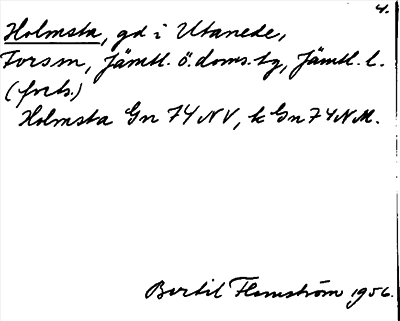 4.
Holmsta, gd i Utanede,
Forsm, Jämtl. ö. doms. tg, Jämtl. l.
(forts.)
Holmsta Gn 74 NV, k Gn 74 NM.
Bertil Flemström 1956.